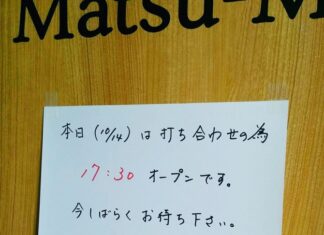 Matsu-M
本日(10/14)は打ち合わせの為
17:30 オープンです。
今しばらくお待ち下さい。